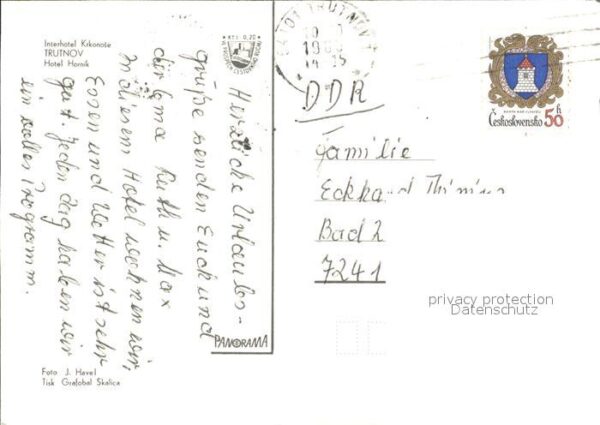 Interhotel Krkonoše
TRUTNOV
Hotel Horník
Herzliche Urlaubs-
grüße senden Euch und
die Oma Ruth u. Max
In diesem Hotel wohnen wir,
Essen und Wetter ist sehr
gut. Jeden Tag haben wir
ein volles Programm.
Foto J. Havel
Tisk Grafobal Skalica
Kčs 0,20
PANORAMA
TRUTNOV
DDR
Československo 50 h
Familie
Eckhard
Bad 2
7241
privacy protection
Datenschutz